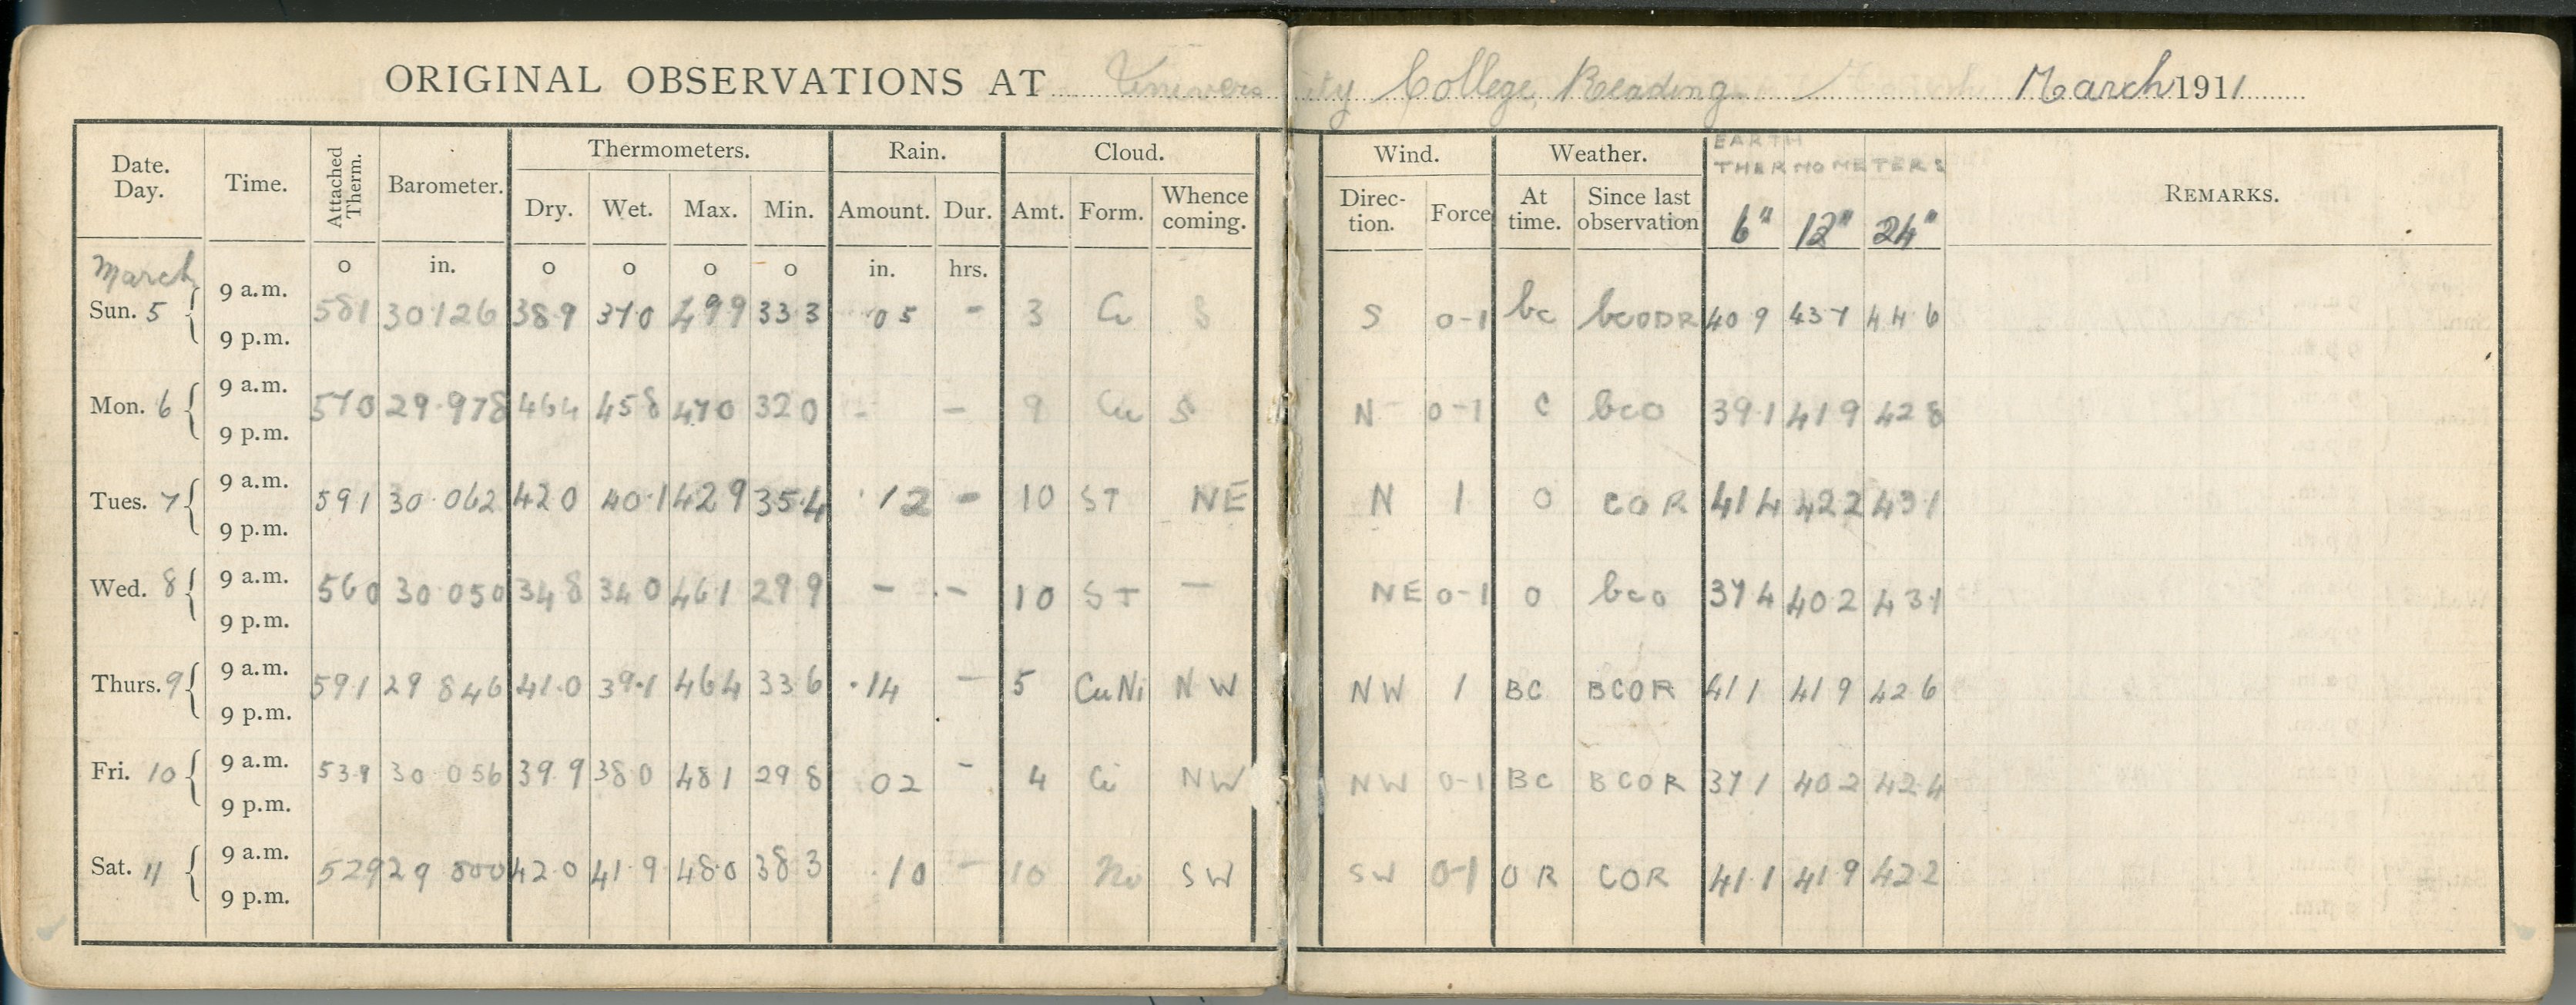 ORIGINAL OBSERVATIONS AT University College Reading March 1911
Date. Day. Time. Attached Therm. Barometer. Thermometers. Rain. Cloud. Wind. Weather. EARTH THERMOMETERS REMARKS.
Dry. Wet. Max. Min. Amount. Dur. Amt. Form. Whence coming. Direc- tion. Force At time. Since last observation 6" 12" 24"
March o in. o o o o in. hrs.
9 a.m.
Sun. 5 581 30.126 38 9 37 0 49 9 33 3 05 - 3 Cu S S 0-1 bc bcodR 40 9 43 7 44 6
9 p.m.
9 a.m.
Mon. 6 570 29.978 46 4 45 8 47 0 32 0 - - 9 Cu S N 0-1 c bco 39 1 41 9 42 8
9 p.m.
9 a.m.
Tues. 7 591 30.062 42 0 40.1 42 9 35.4 .12 - 10 ST NE N 1 O COR 41 4 42 2 43 1
9 p.m.
9 a.m.
Wed. 8 560 30 050 34 8 34 0 46 1 29 9 - - 10 ST - NE 0-1 O bco 37 4 40 2 43 1
9 p.m.
9 a.m.
Thurs. 9 591 29 846 41.0 39.1 46 4 33 6 .14 - 5 CuNi NW NW 1 BC BCOR 41 1 41 9 42 6
9 p.m.
9 a.m.
Fri. 10 539 30 056 39 9 38 0 48 1 29 8 02 - 4 Ci NW NW 0-1 BC BCOR 37 1 40 2 42 4
9 p.m.
9 a.m.
Sat. 11 529 29 800 42 0 41 9 48 0 38 3 .10 - 10 Ni SW SW 0-1 OR COR 41 1 41 9 42 2
9 p.m.